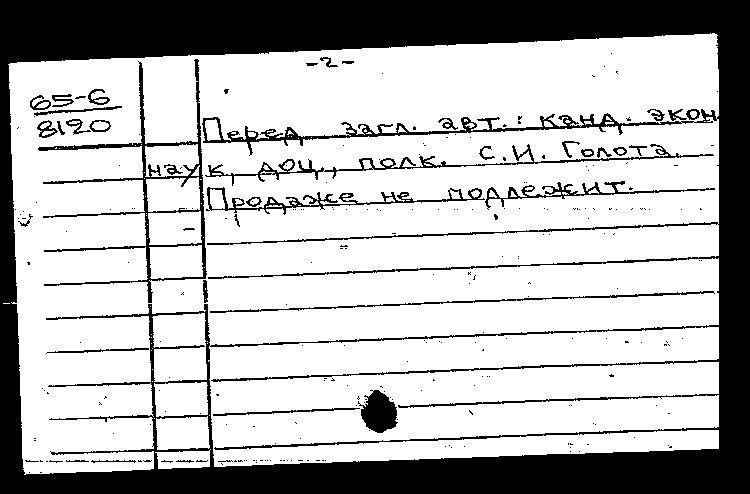 -2-
65-6
8120
Перед загл. авт.: канд. экон
наук, доц., полк. С.И. Голота.
Продаже не подлежит.